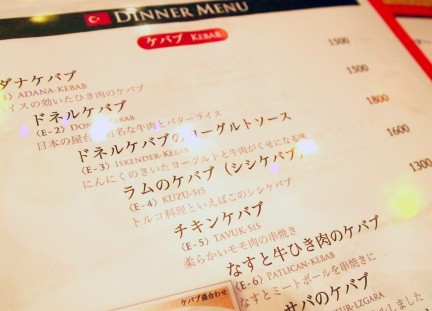 DINNER MENU
ケバブ KEBAB
ダナケバブ 1300
ADANA-KEBAB
イスの効いたひき肉のケバブ
ドネルケバブ 1500
(E-2)
日本の屋台 名な牛肉とバターライス
ドネルケバブの ーグルトソース 1800
(E-3) ISKENDER-KEBAB
にんにくのきいたヨーグルトと牛肉がくせになる味
ラムのケバブ(シシケバブ) 1600
(E-4) KUZU-SIS
トルコ料理といえばこのシシケバブ
チキンケバブ 1300
(E-5) TAVUK-SIS
柔らかいモモ肉の串焼き
なすと牛ひき肉のケバブ
(E-6) PATLICAN-KEBAB
なすとミートボールを串焼きに
サバのケバブ
UR-IZGARA
ました
ケバブ盛合わせ